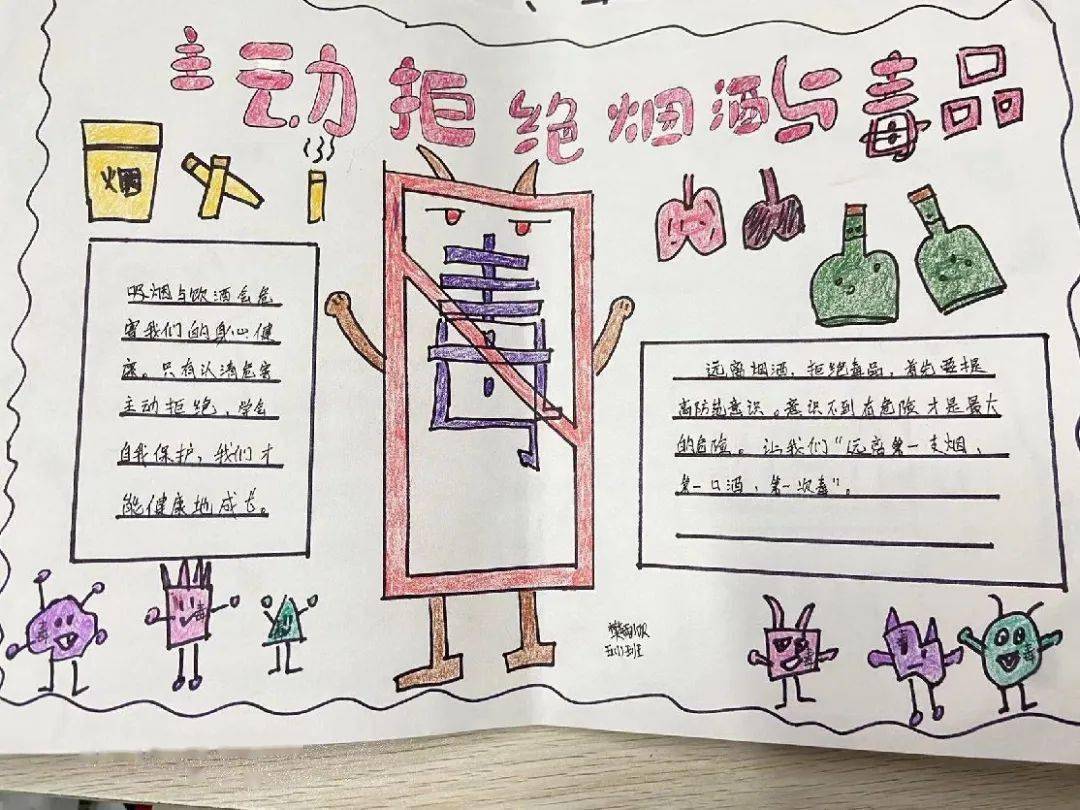 主动拒绝烟酒与毒品
烟
毒
吸烟与饮酒会危
害我们的身心健
康。只有认清危害
主动拒绝、学会
自我保护，我们才
能健康地成长。
远离烟酒，拒绝毒品，首先要提
高防范意识。意识不到有危险才是最大
的危险。让我们“远离第一支烟，
第一口酒，第一次毒”。
毒
毒
毒
毒
毒